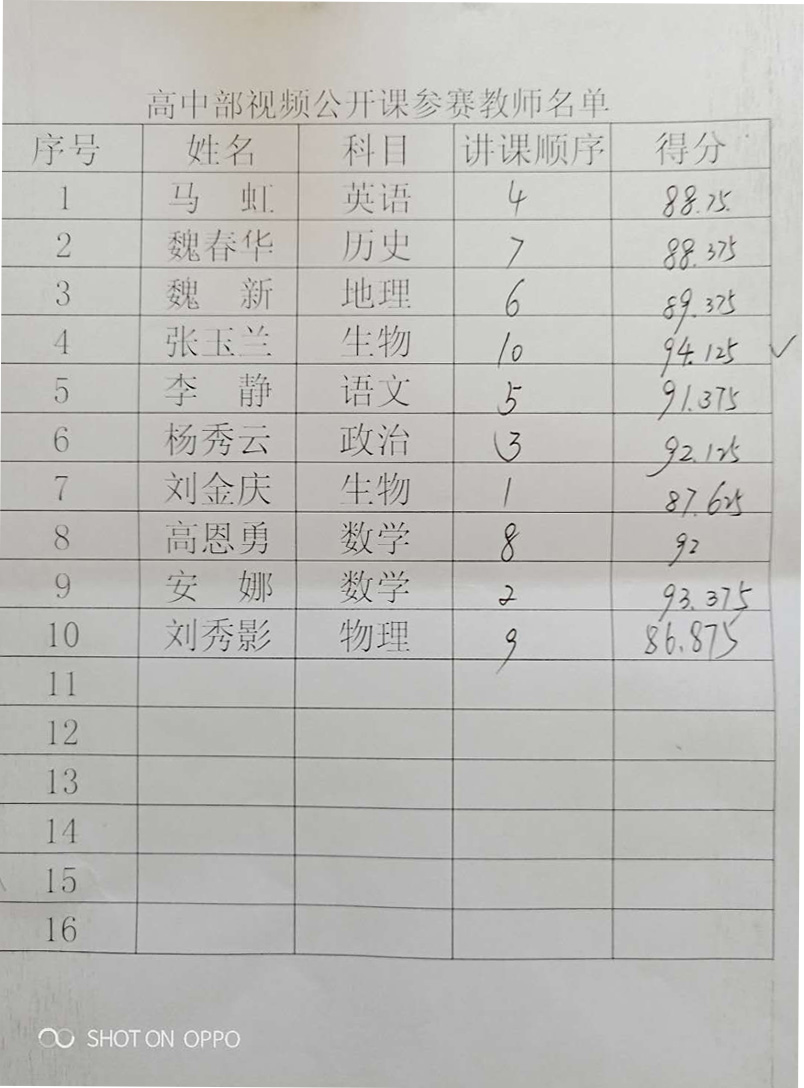 高中部视频公开课参赛教师名单
序号 姓名 科目 讲课顺序 得分
1 马 虹 英语 4 88.75
2 魏春华 历史 7 88.375
3 魏 新 地理 6 89.375
4 张玉兰 生物 10 94.125 ✓
5 李 静 语文 5 91.375
6 杨秀云 政治 3 92.125
7 刘金庆 生物 1 87.625
8 高恩勇 数学 8 92
9 安 娜 数学 2 93.375
10 刘秀影 物理 9 86.875
11
12
13
14
15
16
SHOT ON OPPO